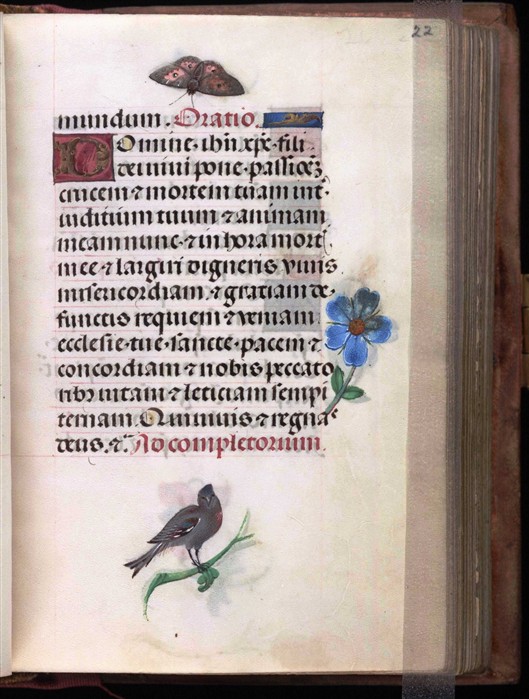 22
mundum. Oratio.
Domine ihu xpe fili
dei vivi pone passioẽꝫ
crucem ⁊ mortem tuam int̾
iuditium tuum ⁊ animam
meam nunc ⁊ in hora mort̾
mee ⁊ largiri digneris vivis
misericordiam ⁊ gratiam de
functis requiem ⁊ veniam
ecclesie tue sancte pacem ⁊
concordiam ⁊ nobis peccato
ribꝫ vitam ⁊ leticiam sempi
ternam. Qui vivis ⁊ regnas
deus. ⁊c̃. Ad completorium.